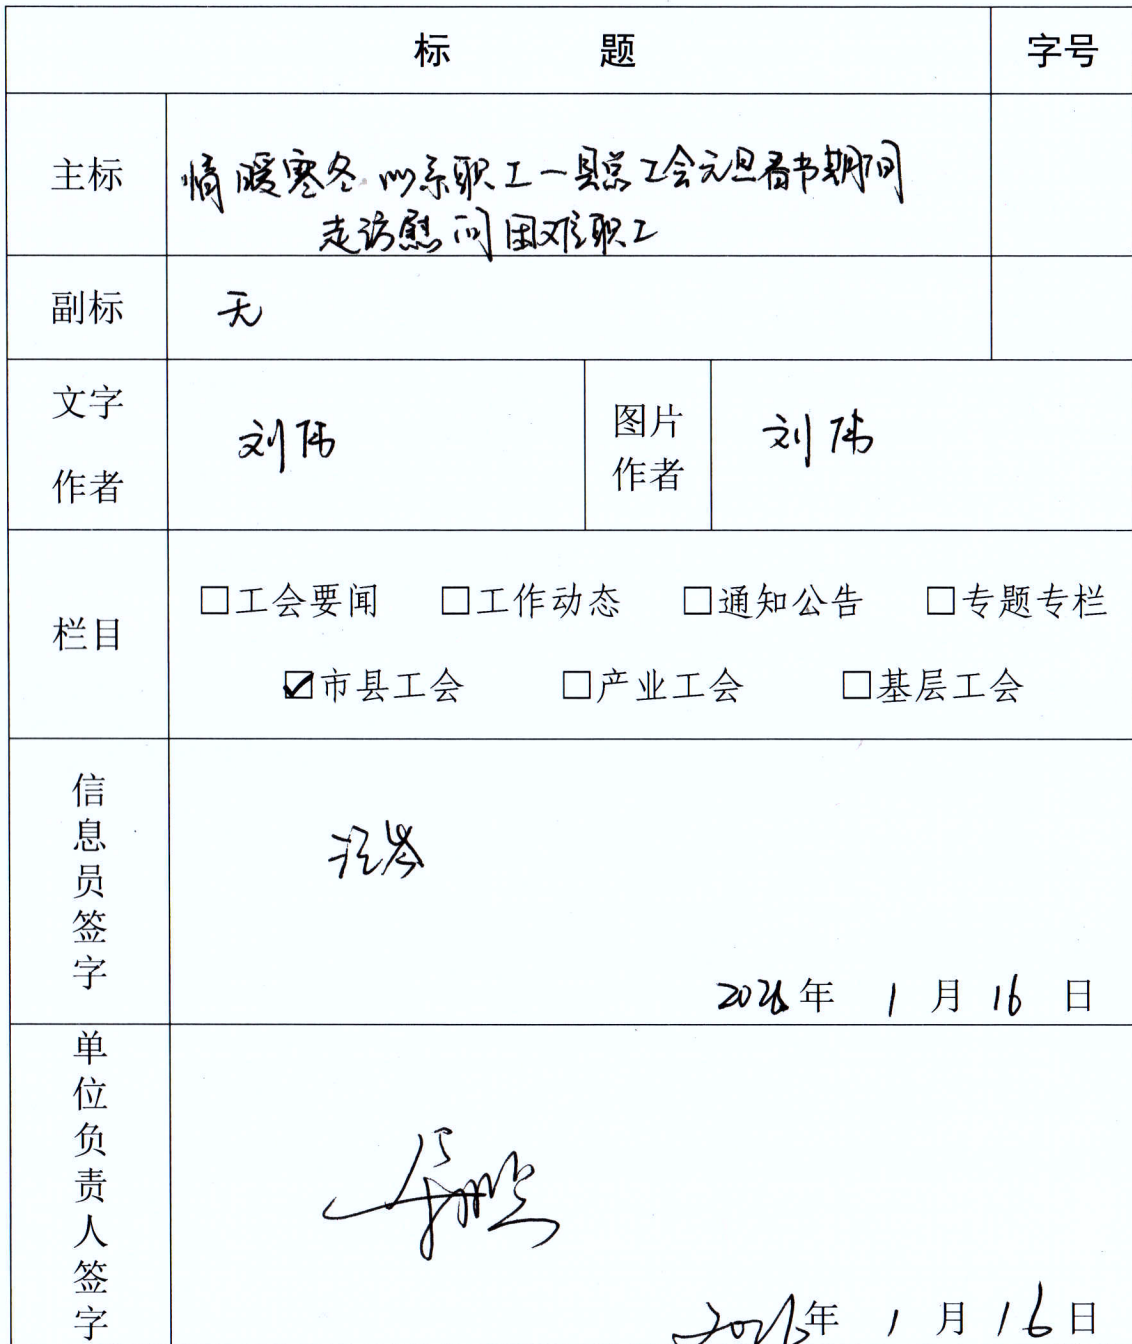 标 题 字号
主标 情暖寒冬 心系职工一县总工会元旦春节期间
走访慰问困难职工
副标 无
文字
作者
刘伟
图片
作者
刘伟
栏目
□工会要闻 □工作动态 □通知公告 □专题专栏
☑市县工会 □产业工会 □基层工会
信息员签字
2026年 1 月 16 日
单位负责人签字
2026年 1 月 16 日